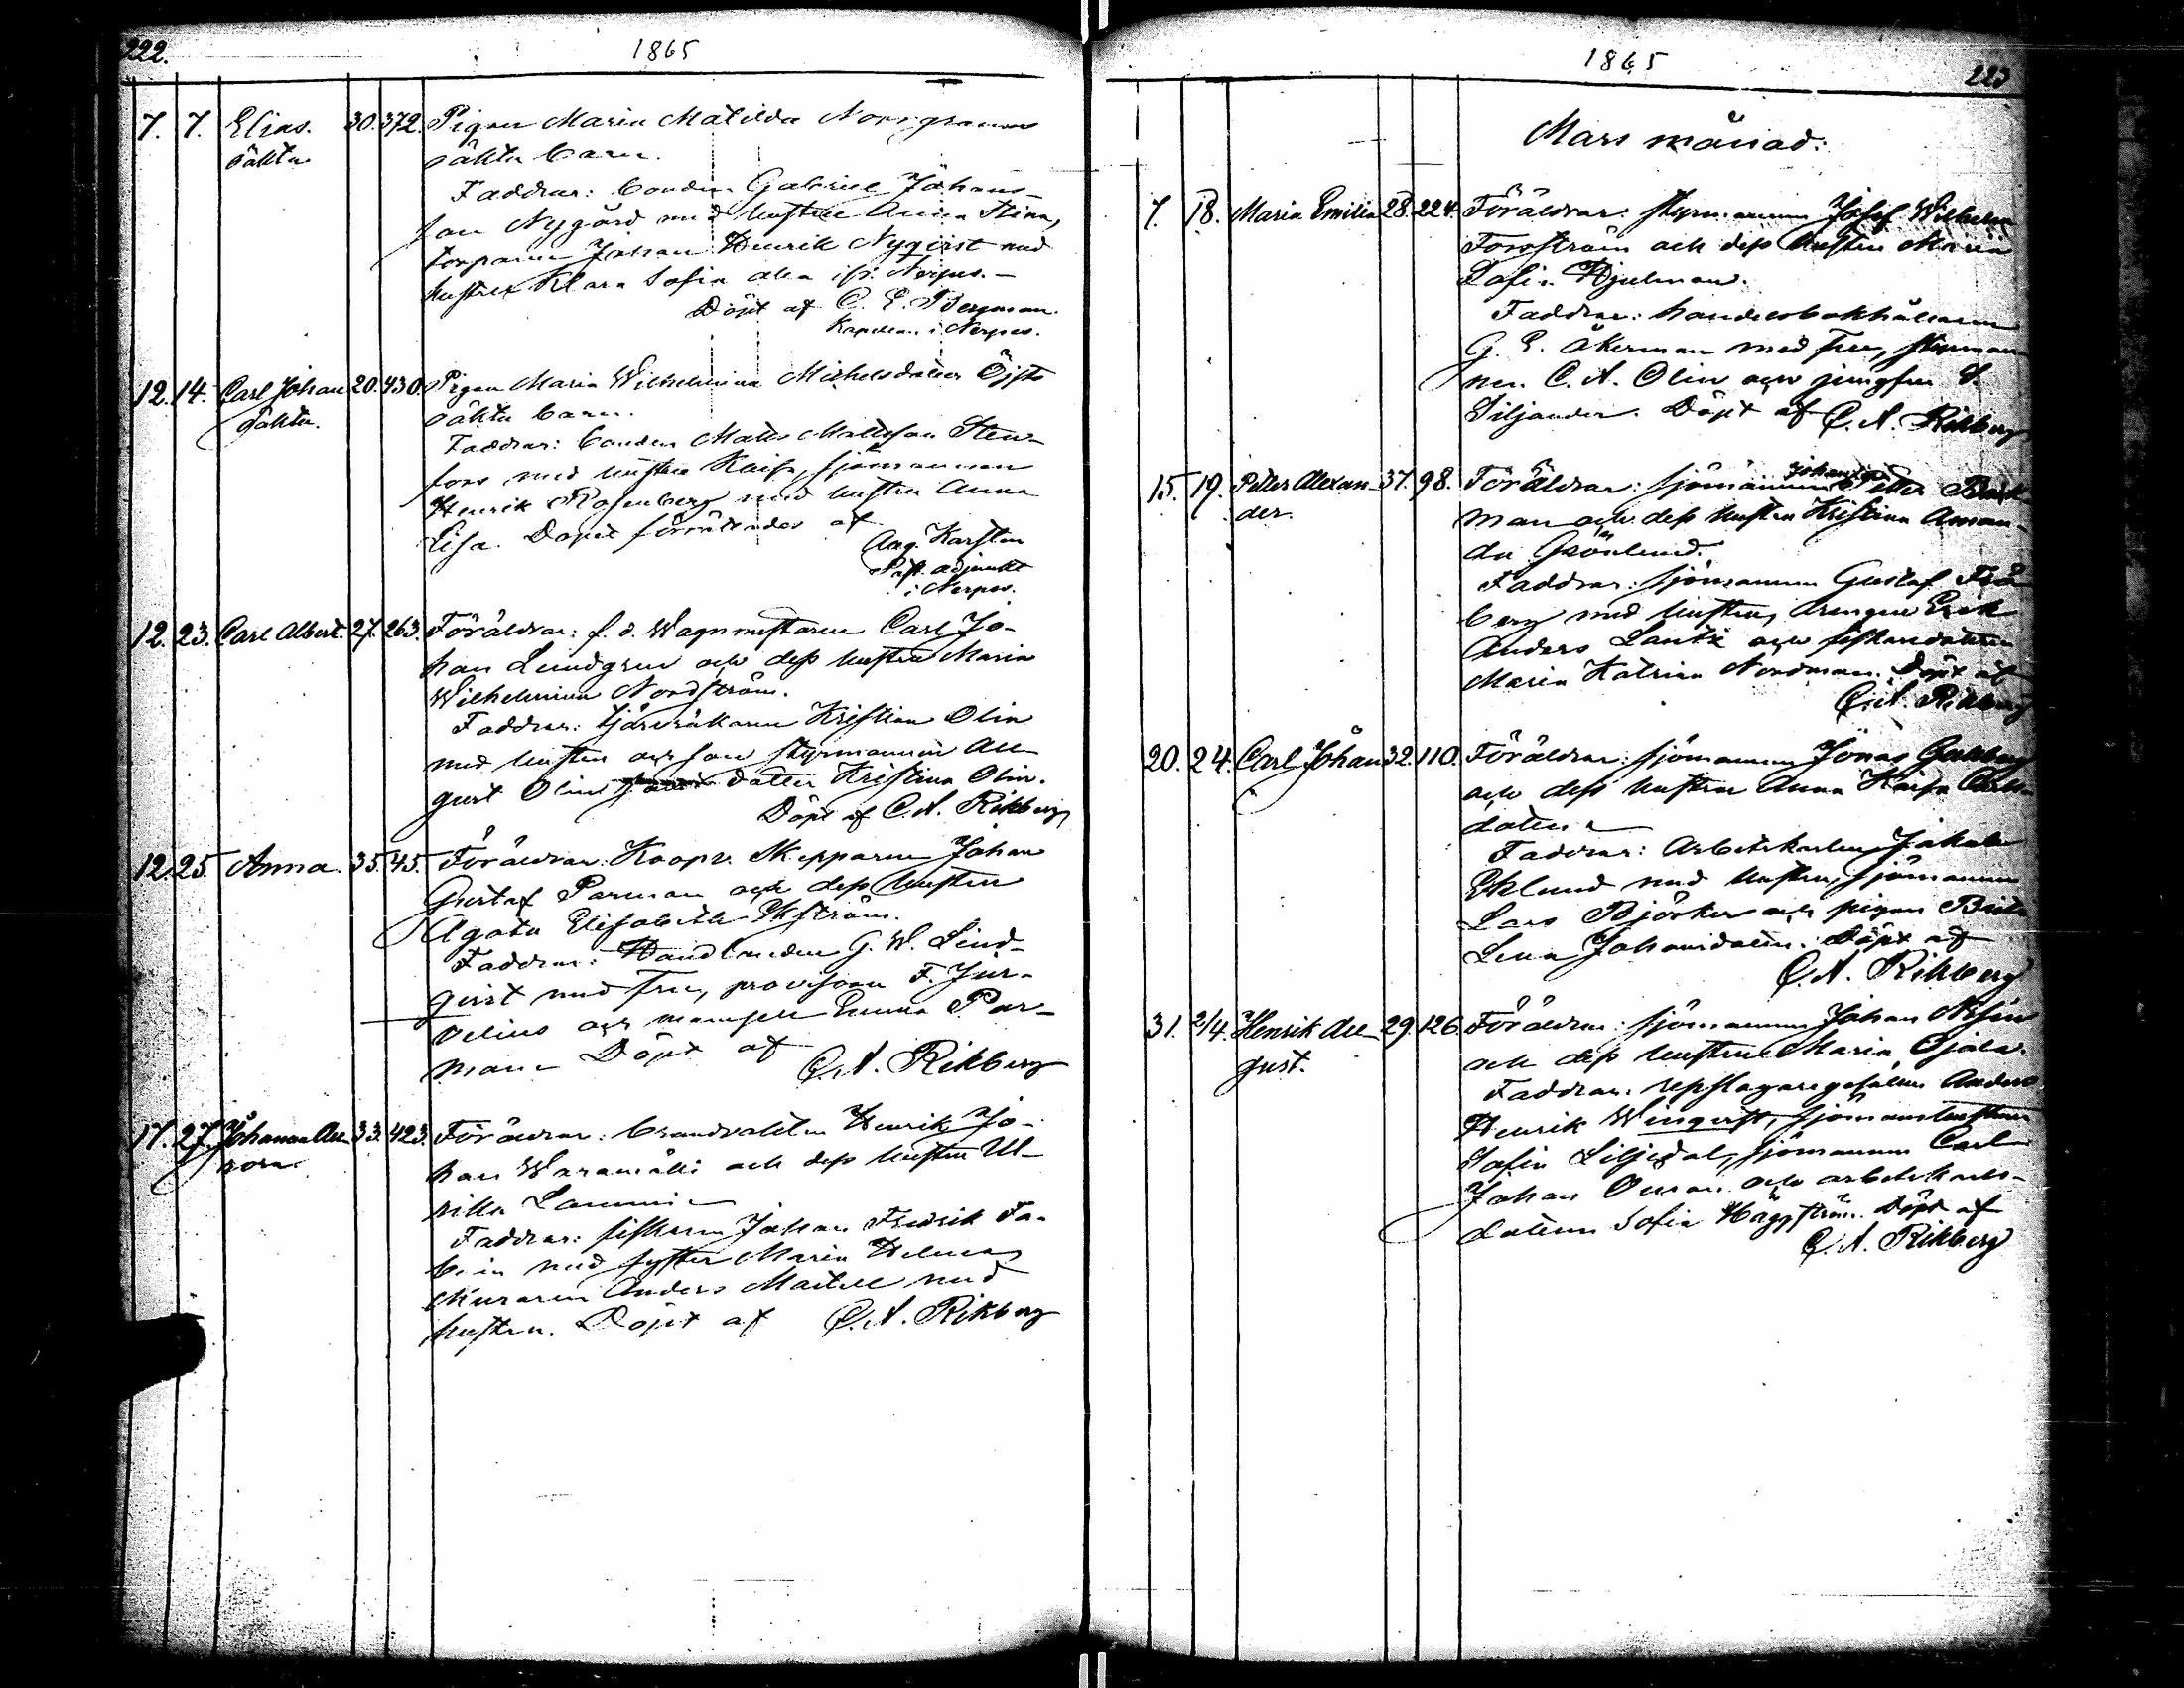 222.
1865
7. 7. Elias. 30. 372. Pigan Maria Matilda Norrgrannas
oäkta oäkta barn.
Faddrar: bonden Gabriel Johans-
son Nygård med hustru Anna Stina,
torparen Johan Henrik Nyqvist med
hustru Klara Sofia alla ifr. Nerpes.
Döpt af C. E. Bergman
Kapellan i Nerpes.
12. 14. Carl Johan 20. 430. Pigan Maria Wilhelmina Michelsdotter Öjst
oäkta. oäkta barn.
Faddrar: bonden Matts Mattsson Sten-
fors med hustru Kaisa, sjömannen
Henrik Rosenberg med hustru Anna
Lisa. Dopet förrättades af
Aug. Karsten
Past. adjunkt
i Nerpes.
12. 23. Carl Albert. 27. 263. Föräldrar: f. d. Wagnmästaren Carl Jo-
han Lundgren och dess hustru Maria
Wilhelmina Nordström.
Faddrar: tjärvräkaren Kristian Olin
med hustru och son styrmannen Au-
gust Olin dotter Kristina Olin.
Döpt af C. A. Rikberg
12. 25. Anna. 35. 45. Föräldrar: Koopv. Skepparen Johan
Gustaf Parman och dess hustru
Agata Elisabeth Ekström.
Faddrar: Handlanden G. W. Lind-
qvist med fru, provisorn F. Jür-
velius och mamsell Emma Par-
man. Döpt af
C. A. Rikberg
17. 27. Johanna Au- 33. 423. Föräldrar: brandvakten Henrik Jo-
rora. han Waramäki och dess hustru Ul-
rika Lammi
Faddrar: fiskaren Johan Fredrik Fa-
bein med syster Maria Helena,
Muraren Anders Martell med
hustru. Döpt af C. A. Rikberg
1865
223
Mars månad:
7. 18. Maria Emilia 28. 224. Föräldrar: styrmannen Josef Wilhelm
Forsström och dess hustru Maria
Sofia Hjulman.
Faddrar: handelsbokhållaren
G. E. Åkerman med fru, styrman-
nen C. A. Olin och jungfru S.
Siljander. Döpt af C. A. Rikberg
15. 19. Petter Alexan- 37. 98. Föräldrar: sjömannen Johan Petter Back-
der. man och dess hustru Kristina Aman-
da Grönlund.
Faddrar: sjömannen Gustaf Frö-
berg med hustru, drengen Erik
Anders Lantz och fiskaredottren
Maria Katrina Nordman. Döpt af
C. A. Rikberg
20. 24. Carl Johan 32. 110. Föräldrar: sjömannen Jonas Gullberg
och dess hustru Anna Kaisa Carls-
dotter
Faddrar: Arbetskarlen Jakob
Eklund med hustru, sjömannen
Lars Björker och pigan Brita
Lena Johansdotter. Döpt af
C. A. Rikberg
31. 2/4. Henrik Au- 29. 126. Föräldrar: sjömannen Johan
gust. och dess hustru Maria Ojala.
Faddrar: repslagaregesällen Anders
Henrik Winqvist, sjömanshustrun
Sofia Liljedal, sjömannen Carl
Johan och arbetskarls-
dottern Sofia Häggström. Döpt af
C. A. Rikberg